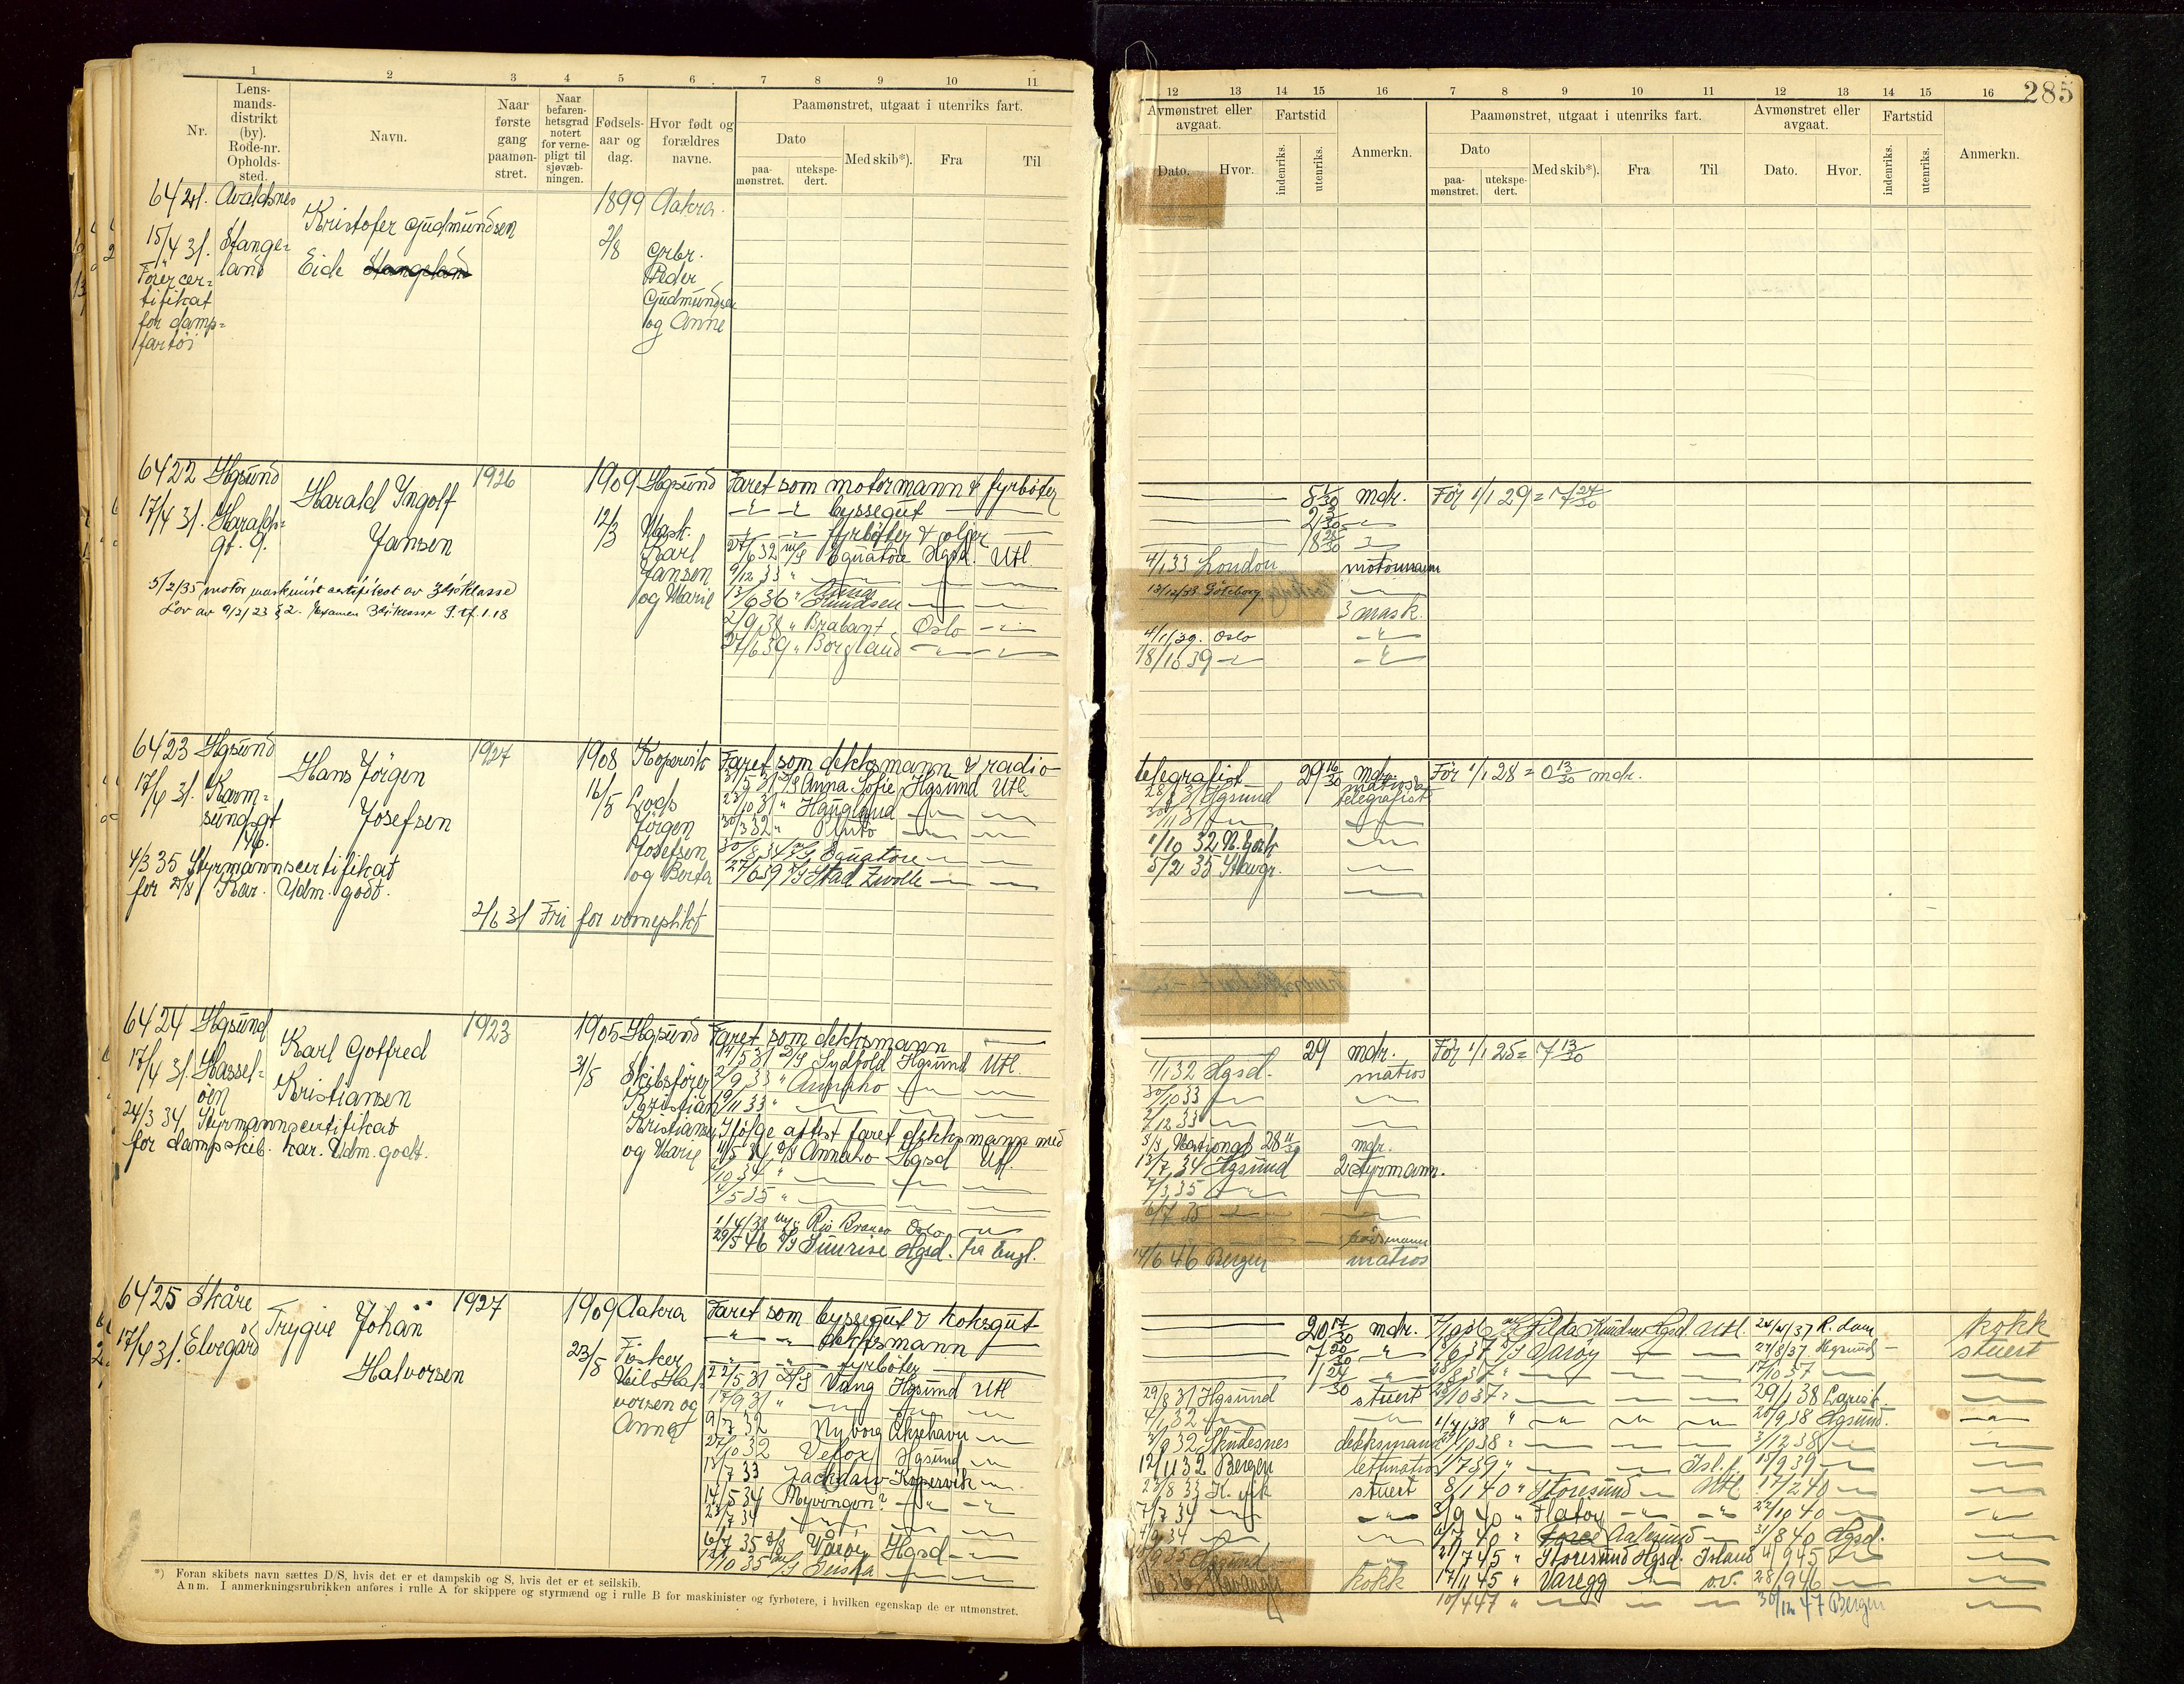 1 2 3 4 5 6 7 8 9 10 11
Nr.
Lens-
mands-
distrikt
(by).
Rode-nr.
Opholds-
sted.
Navn.
Naar
første
gang
paamøn-
stret.
Naar
befaren-
hetsgrad
notert
for verne-
pligt til
sjøvæb-
ningen.
Fødsels-
aar og
dag.
Hvor født og
forældres
navne.
Paamønstret, utgaat i utenriks fart.
Dato
paa-
mønstret.
utekspe-
dert.
Med skib*).
Fra
Til
6421. Avaldsnes
Kristofer Gudmundsen
1899 Aakra.
15/4 31. Stange-
land
Eide Stangeland
2/8
Grbr.
Peder
Gudmundsen
og Anne
Förercer-
tifikat
for damp-
fartöi
6422 Hgsund
Harald Ingolf
Jansen
1926
1909 Hgsund
Faret som motormann & fyrböter
17/4 31. Haralds-
gt. 9.
12/3
Karl
Jansen
og Marie
byssegut
fyrböter & oljer
27/6 32 m/S Equatore Hgsd. Utl
9/12 33 "
13/6 36 " Knudsen
2/9 38 " Brabant Oslo
27/6 39 " Borgland
5/2/35 motormaskinist certifikat av 3dje Klasse
Lov av 9/3/23 § 2.
6423 Hgsund
Hans Jörgen
Josefsen
1927
1908 Kopervik
Faret som dekksmann & radio
17/4 31. Karm-
sund.gt
146.
16/5 Lods
Jörgen
Josefsen
og Berta
3/5 31 D/S Anna Sofie Hgsund Utl.
23/10 31 " Haugland
30/3 32 " Pluto
30/8 34 m/S Equatore
27/6 39 Stad Zwolle
4/3 35 Styrmannscertifikat
for D/S Kar. Udm. godt.
2/6 31 Fri for verneplikt
6424 Hgsund
Karl Gotfred
Kristiansen
1923
1905 Hgsund
Faret som dekksmann
17/4 31. Hassel-
öen
31/5 Skibsförer
Kristian
Kristiansen
og Marie
11/5 31 D/S Sydfold Hgsund Utl.
2/9 33 " Annaho
19/11 33 "
Ifölge attest faret dekksmann med
11/5 34 D/S Annaho Hgsd Utl.
/10 34 "
4/5 35 "
1/4 38 m/S Rio Branco Oslo
29/5 46 Sunrise Hgsd. fra Engl.
24/3 34 Styrmannscertifikat
for dampskib. Kar. Udm. godt.
6425 Skåre
Trygve Johan
Halvorsen
1927
1909 Aakra
Faret som byssegut & koksgut
17/4 31. Elvegård
23/5 Fisker
Nils Hal-
vorsen og
Anna
dekksmann
fyrböter
22/5 31 D/S Vang Hgsund Utl
17/9 31 "
9/7 32 Nyborg Åkrehavn
27/10 32 Vefox Hgsund
13/7 33 Jackdaw Kopervik
14/5 34 Myvongon?
23/7 34
6/7 35 D/S Varöy Hgsd
12/10 35
*) Foran skibets navn sættes D/S, hvis det er et dampskib og S, hvis det er et seilskib.
Anm. I anmerkningsrubrikken anføres i rulle A for skippere og styrmænd og i rulle B for maskinister og fyrbøtere, i hvilken egenskap de er utmønstret.
12 13 14 15 16 7 8 9 10 11 12 13 14 15 16 285
Avmønstret eller
avgaat.
Dato. Hvor.
Fartstid
indenriks. utenriks.
Anmerkn.
Paamønstret, utgaat i utenriks fart.
Dato
paa-
mønstret.
utekspe-
dert.
Med skib*). Fra Til
Avmønstret eller
avgaat.
Dato. Hvor.
Fartstid
indenriks. utenriks.
Anmerkn.
mdr. För 1/1 29 = 7 27/30
18 28/30
4/1 33 London motormann
13/12/33 Göteborg
3 mask.
4/1/39. Oslo
18/10 39
telegrafist 29 16/30 mdr. För 1/1 28 = 0 13/30 mdr.
28/8 31 Hgsund telegrafist
30/11 31
1/10 32 N. York
5/2 35 Stavgr.
29 mdr. För 1/1 25 = 7 13/30
1/1 32 Hgsd. matros
30/10 33
2/12 33
28 11/30 mdr.
13/7 34 Hgsund 2 styrmann.
7/3 35
6/7 35
båtsmann
14/6 46 Bergen matros
20 17/30 mdr.
7 20/30 "
1 24/30
7/10 36 Gilda Knudsen Hgsd. Utl. 24/4/37 R.dam kokk
18/6 37 D/S Varöy 27/8/37 Hgsund stuert
28/8 37 " 17/10 37
29/8 31 Hgsund stuert 28/10 37 " 29/1 38 Larvik
4/1 32 1/4 38 " 20/9 38 Hgsund.
3/9 32 Skudesnes dekksmann /10 38 " 3/12 38
12/11 32 Bergen lettmatros /7 39 " Isl.f. 15/9 39
23/8 33 K.vik stuert 8/1 40 " Storesund Utl. 17/2 40
7/7 34 3/9 40 " Flatöy 22/10 40
/9 34 6/7 40 " Aalesund 31/8 40 Hgsd.
Hgsund 21/7 45 " Storesund Hgsd. Island 11/9 45
11/6 36 Stavanger kokk 17/11 45 " Varegg o.v. 28/9 46
10/4 47 " 30/12 47 Bergen